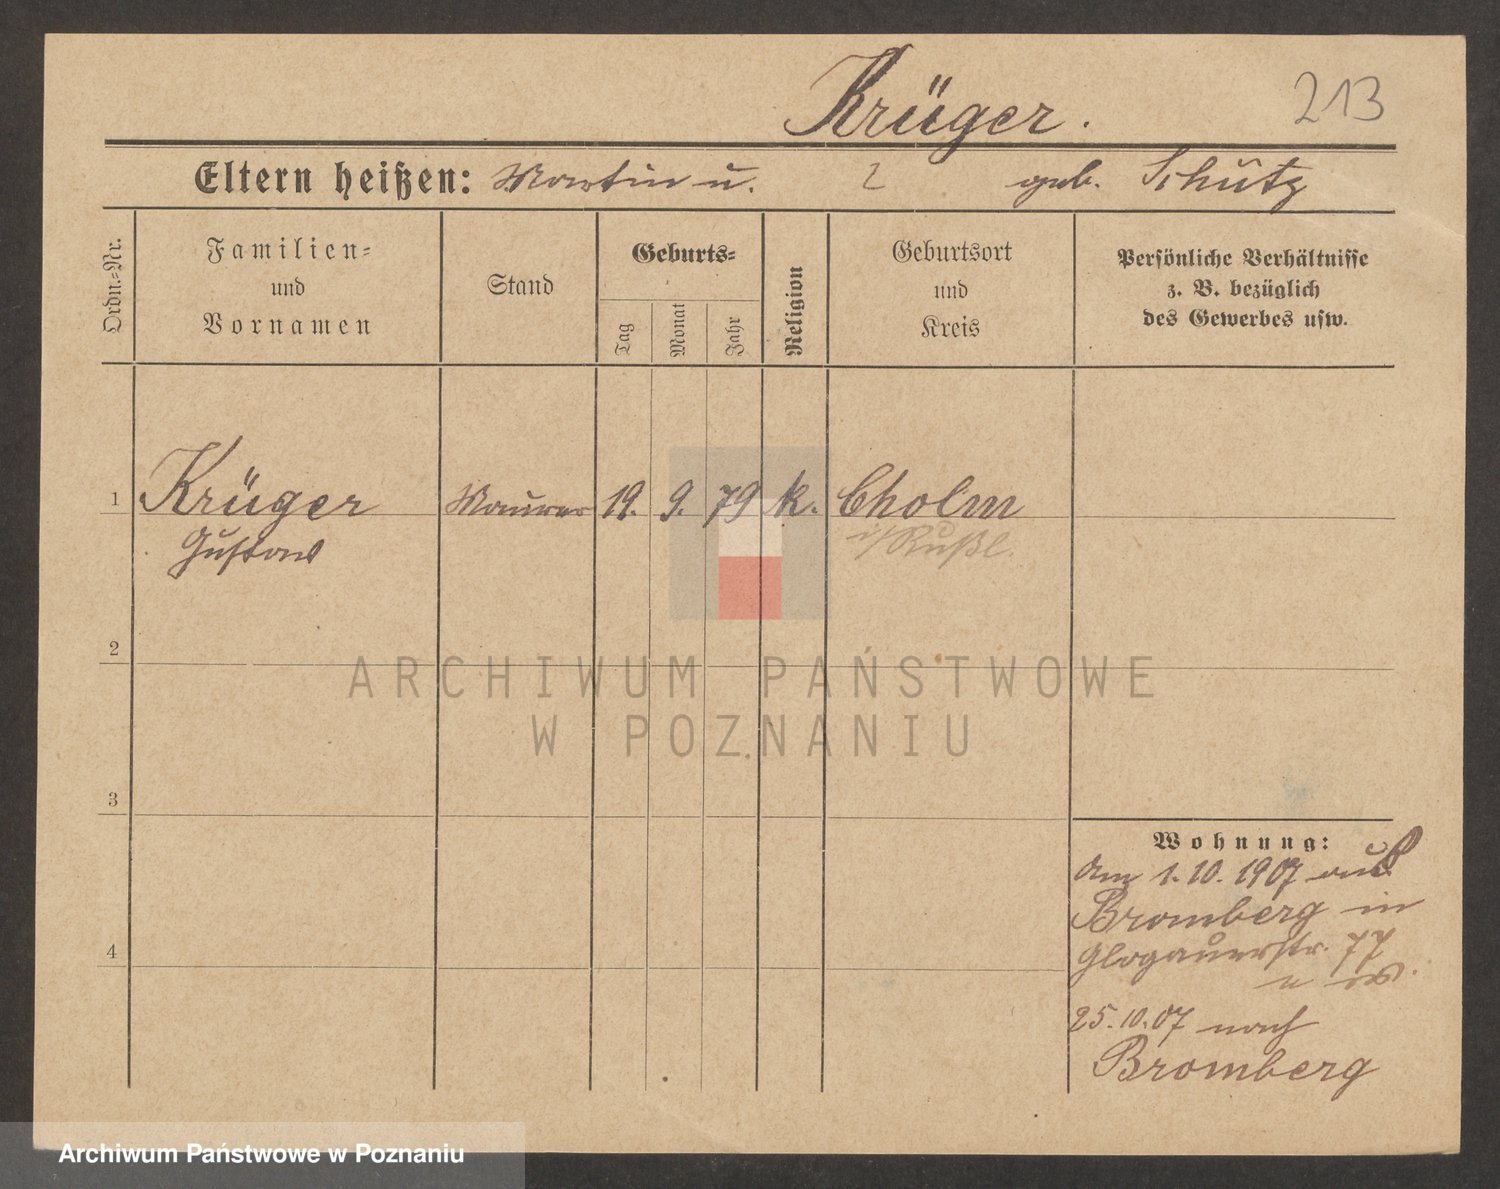 Krüger.
213
Eltern heißen: Martin u. geb. Schütz
Ordn.-Nr.
Familien-
und
Vornamen
Stand
Geburts-
Tag
Monat
Jahr
Religion
Geburtsort
und
Kreis
Persönliche Verhältnisse
z. B. bezüglich
des Gewerbes usw.
1 Krüger Maurer 19. 9. 79 k. Cholm
Gustav i/Rußl.
2
ARCHIWUM PAŃSTWOWE
W POZNANIU
3
Wohnung:
Am 1.10.1907 aus
Bromberg in
Glogauerstr. 77
4
25.10.07 nach
Bromberg
Archiwum Państwowe w Poznaniu